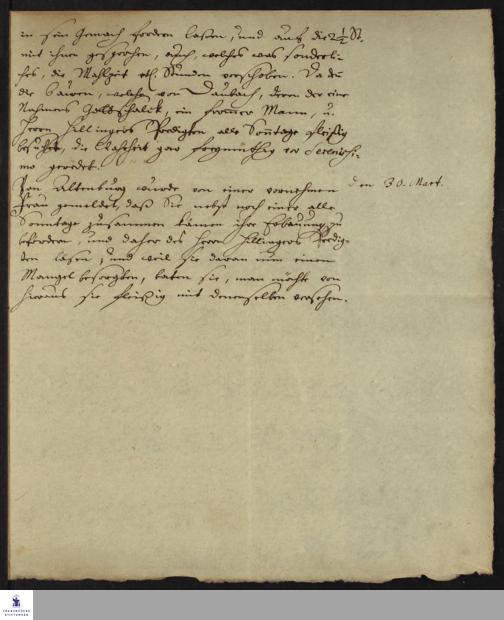 in sein Gemach fordern laßen, und auf die 2½ St.
mit ihnen gesprochen, auch, welches was sonderli-
ches, die Mahlzeit etl. Stunden verschoben. Da den
die Bauren, welche von Daubach, deren der eine
Nahmens Gottschalck, ein frommer Mann, u.
Herrn Hillingers Predigten alle Sonntage fleißig
besuchet, die Wahrheit gar freymüthig vor Serenissi-
mo geredet.
Von Altenburg wurde von einer vornehmen
den 30. Mart.
Frau gemeldet, daß Sie nebst noch einer alle
Sonntage zusammen kämen ihre Erbauung zu
befördern, und daher des Herrn Hillingers Predig-
ten lasen, und weil sie daran nun einen
Mangel besorgten, baten sie, man möchte von
hieraus sie fleißig mit denenselben versehen.
FRANCKESCHE
STIFTUNGEN